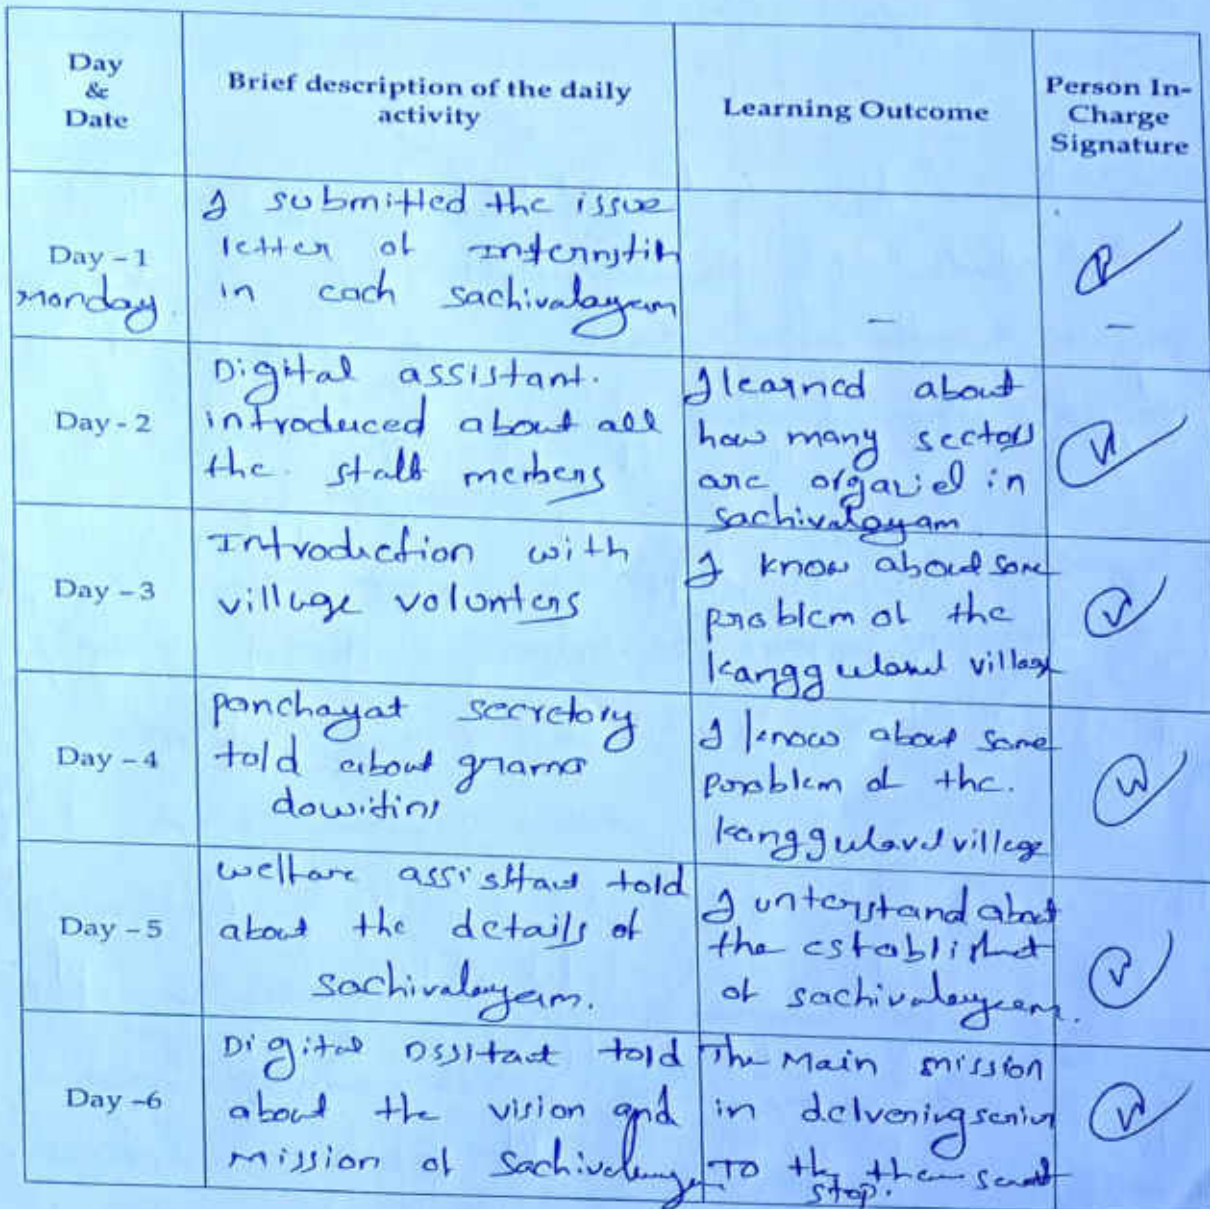 Day
&
Date
Brief description of the daily
activity
Learning Outcome
Person In-
Charge
Signature
Day - 1
Monday.
I submitted the issue
letter of
in each sachivalayam
-
-
Day - 2
Digital assistant.
introduced about all
the. staff membens
I learned about
how many sectors
are in
sachivalayam
Day - 3
Introduction with
village volunters
I know about some
problem of the
village
Day - 4
panchayat secretory
told about grama
I know about some
problem of the.
village
Day - 5
welfare assisttant told
about the details of
Sachivalayam.
I unterstand about
the
of sachivalayam.
Day -6
Digital told
about the vision and
mission of
The Main mission
in
To the
stop.